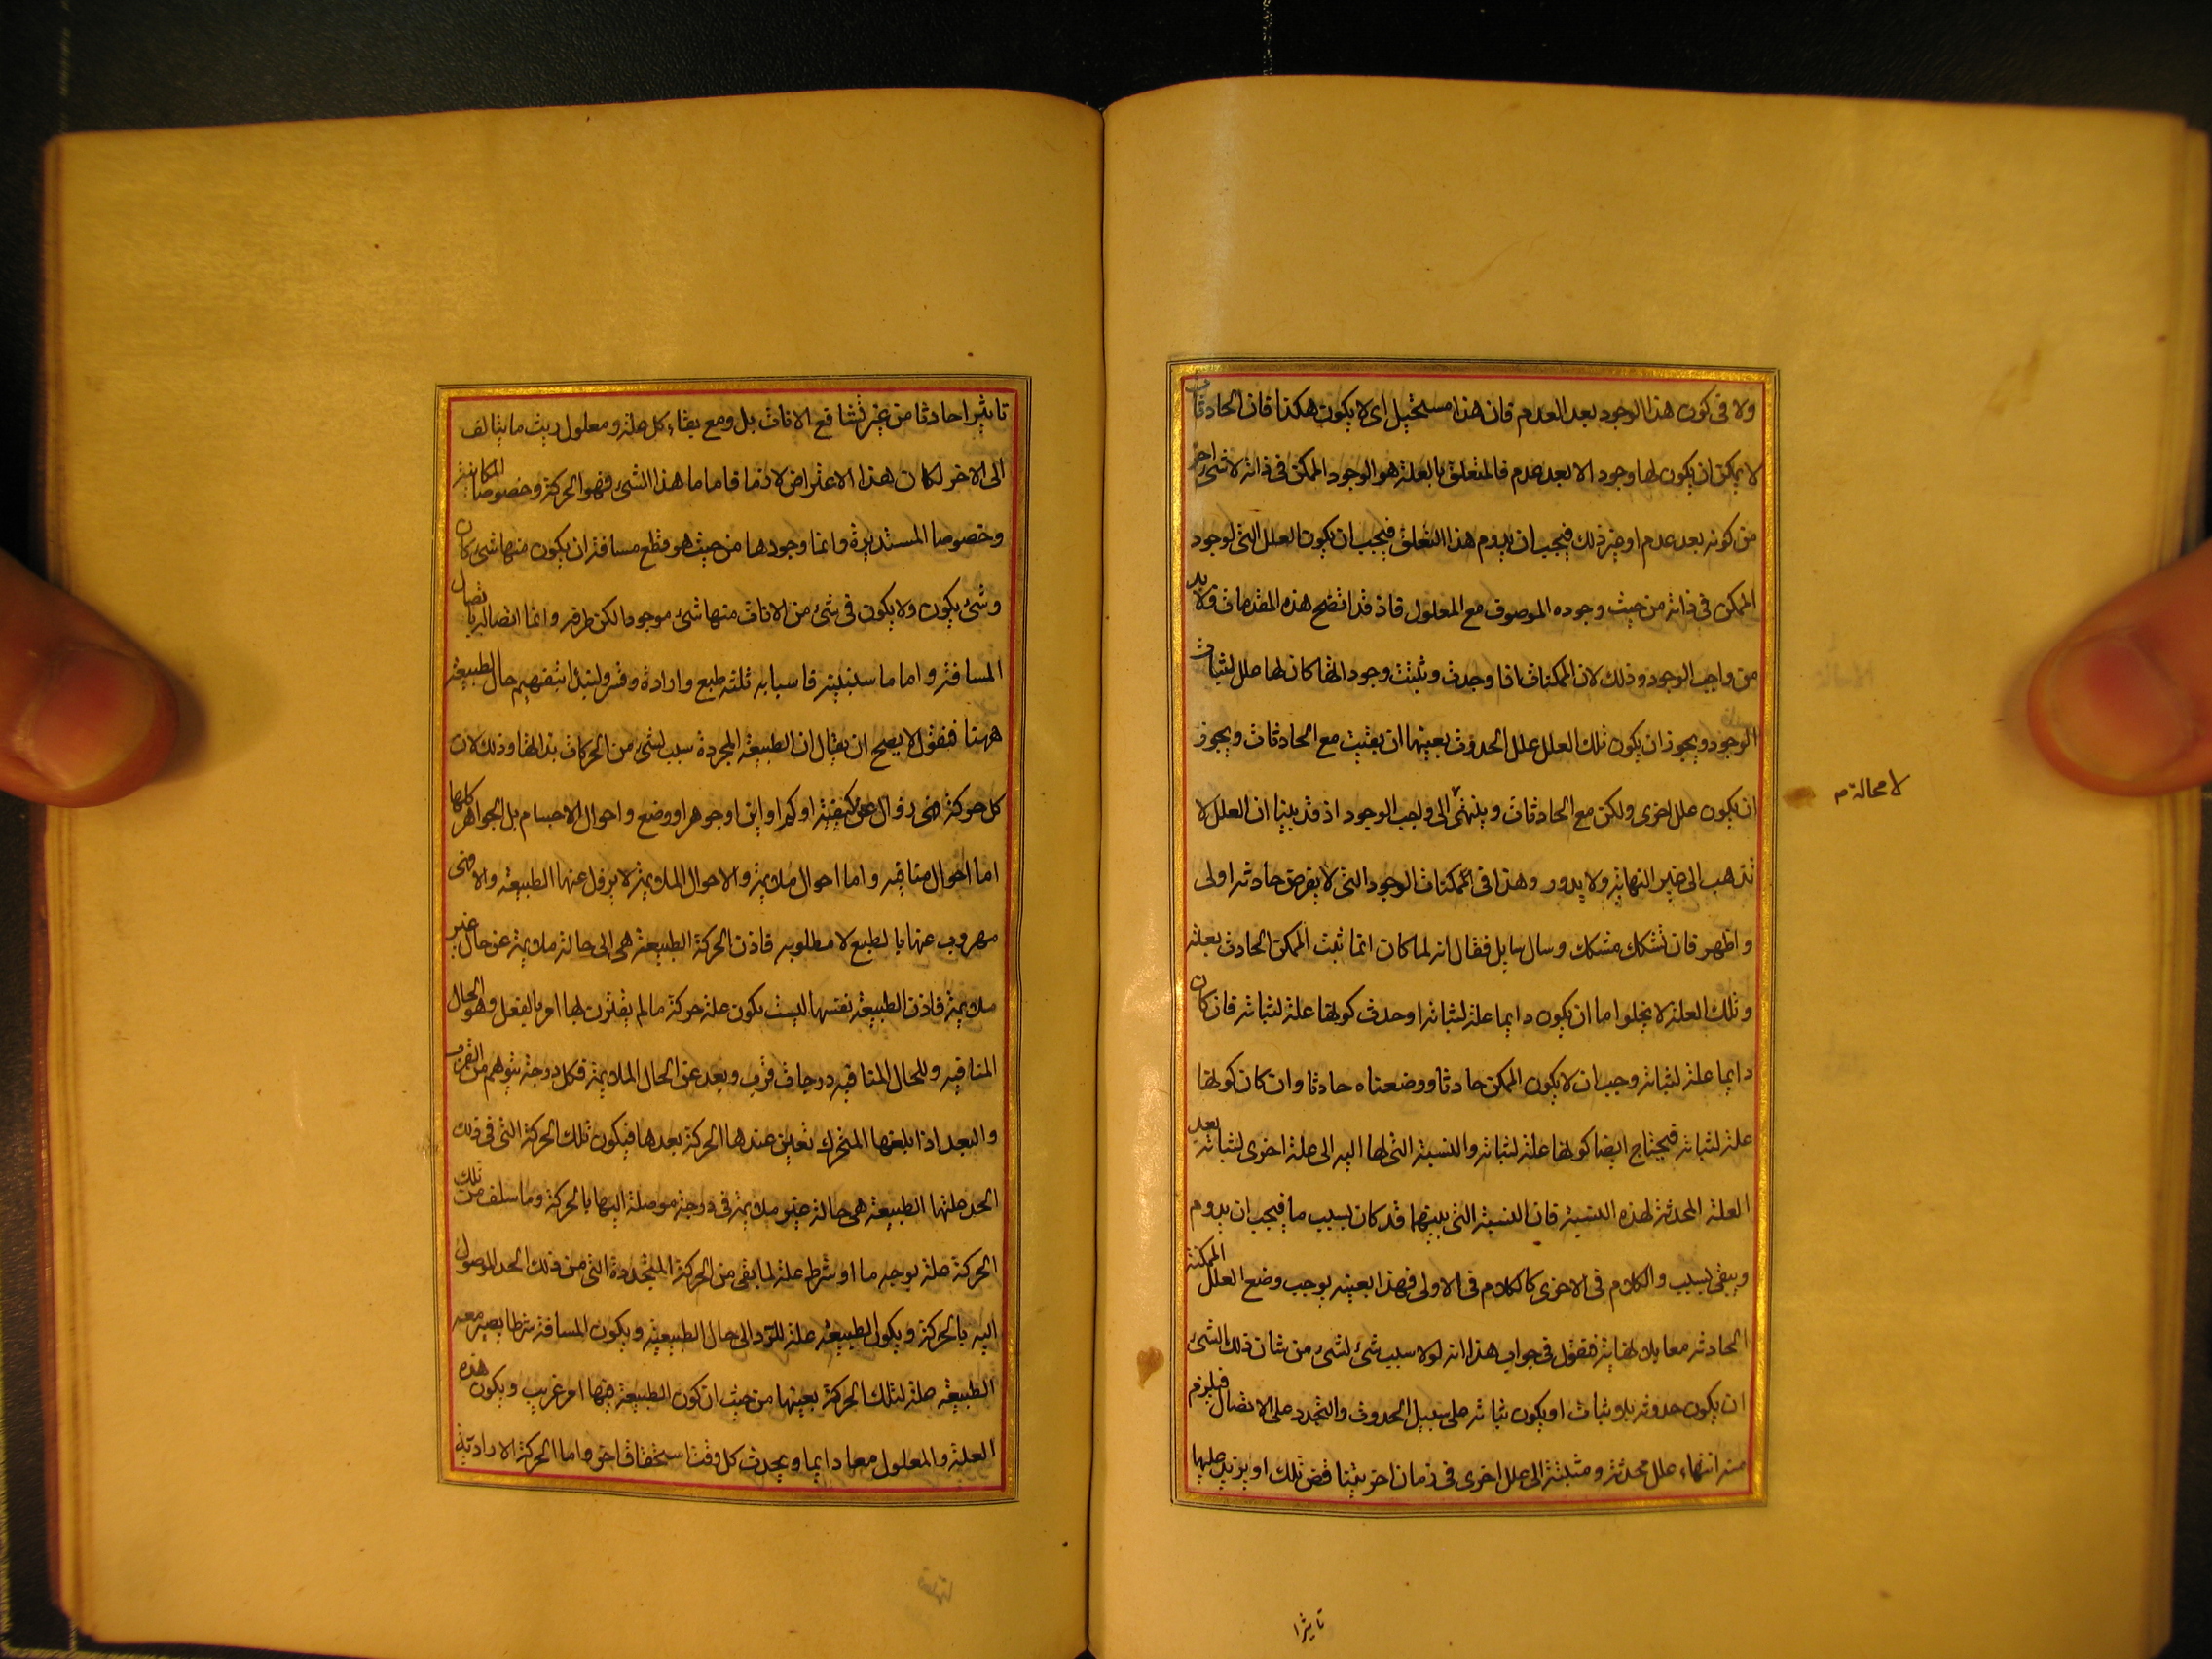 ولا فى كون هذا الوجود بعد العدم فان هذا مستحيل اى لا يكون هكذا فان الحادثات
لا يمكن ان يكون لها وجود الا بعد عدم فالمتعلق بالعلة هو الوجود الممكن فى ذاته لا شى اخر
من كونه بعد عدم او غير ذلك فيجب ان يدوم هذا التعلق فيجب ان يكون العلل التى لوجود
الممكن فى ذاته من حيث وجوده الموصوف مع المعلول فاذ قد اتضح هذه المقدمات فلا بد
من واجب الوجود وذلك لان الممكنات اذا وجدت وثبتت وجودالها كان لها علل لثبات
الوجود ويجوز ان يكون تلك العلل علل الحدوث بعينها ان بقيت مع الحادثات ويجوز
ان يكون علل اخرى ولكن مع الحادثات وينتهى الى واجب الوجود اذ قد بينا ان العلل لا
لا محالة م
تذهب الى غير النهاية ولا يدور وهذا فى الممكنات الوجود التى لا يفرض حادثه اولى
واظهر فان تشكك مشكك وسال سايل فقال انه لما كان انما ثبت الممكن الحادث بعلة
وتلك العلة لا يخلوا اما ان يكون دايما علة لثباته او حدث كونها علة لثباته فان كان
دايما علة لثباته وجب ان لا يكون الممكن حادثا ووضعناه حادثا وان كان كونها
علة لثباته فيحتاج ايضا كونها علة لثباته والنسبة التى لها اليه الى علة اخرى لثباته بعد
العلة المحدثة لهذه النسبة فان النسبة التى بينهما قد كان بسبب ما فيجب ان يدوم
ويبقى بسبب والكلام فى الاخرى كالكلام فى الاولى فهذا بعينه يوجب وضع العلل الممكنة
الحادثه معا بلا نهاية فنقول فى جواب هذا انه لولا سبب شئ لشى من شان ذلك الشئ
ان يكون حدوثه بلا ثبات او يكون ثباته على سبيل الحدوث والتجدد على الاتصال فيلزم
منه انتهاء علل محدثة ومثبتة الى علل اخرى فى زمان اخر يناقض تلك او يزيد عليها
تاثيرا
تاثيرا حادثا من غير تشافع الانات بل ومع بقاء كل علة ومعلول ريث ما يتالف
الى الاخر لكان هذا الاعتراض لازما فاما ما هذا الشئ فهو الحركة وخصوصا المكانية
وخصوصا المستديرة وانما وجودها من حيث هو قطع مسافة ان يكون منها شئ كان
وشئ يكون ولا يكون فى شئ من الانات منها شئ موجودا لكن طرفه وانما اتصاله باتصال
المسافة واما ما سببيته فاسبابه ثلثه طبع وارادة وقسر ولنبتدا بتفهيم حال الطبيعة
ههنا فنقول لا يصح ان يقال ان الطبيعه المجردة سبب لشى من الحركات بذاتها وذلك لان
كل حركة فهى زوال عن كيفية او كم او اين او جوهر او وضع واحوال الاجسام بل الجواهر كلها
اما احوال منافيه واما احوال ملايمة والاحوال الملايمة لا يزول عنها الطبيعه والا فهى
مهروب عنها بالطبع لا مطلوبه فاذن الحركة الطبيعة هى الى حالة ملايمة عن حال غير
ملايمة فاذن الطبيعة نفسها ليست يكون علة حركة مالم يقترن بها امر بالفعل وهو الحال
المنافيه وللحال المنافيه درجات قرب وبعد عن الحال الملايمة فكل درجة يتوهم من القرب
والبعد اذا بلغها المتحرك تعين عندها الحركة بعدها فيكون تلك الحركة التى فى ذلك
الحد علتها الطبيعة هى حالة غير ملايمة فى درجة موصلة اليها بالحركة وما سلف من تلك
الحركة علة بوجه ما او شرط علة لما بقى من الحركة المتجددة التى من ذلك الحد الموصول
اليه بالحركة ويكون الطبيعه علة للرد الى حال الطبيعية ويكون المسافة شرطا يصير معه
الطبيعه علة لتلك الحركة بعينها من حيث ان كون الطبيعة فيها امر غريب ويكون هذه
العلة والمعلول معا دايما ويحدث كل وقت استحقاق اخر واما الحركة الارادية